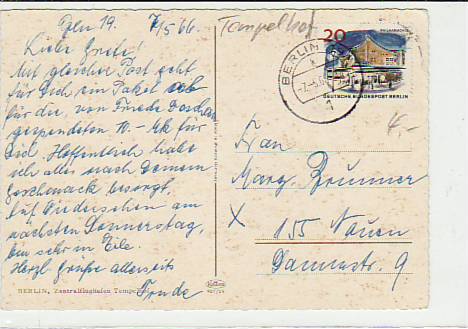 Bln 19. 7/5 66
Liebe Grete!
Mit gleicher Post geht
für Dich ein Paket ab
für die, von Frieda
gespendeten 10.- Mk für
Dich. Hoffentlich habe
ich alles nach Deinem
Geschmack besorgt.
Auf Wiedersehen am
nächsten Donnerstag,
bin sehr in Eile.
Herzl Grüße allerseits
Frieda
BERLIN, Zentralflughafen Tempelhof
Tempelhof
20
DEUTSCHE BUNDESPOST BERLIN
BERLIN
1
Frau
Marg. Brunner
X 155 Nauen
Dammstr. 9